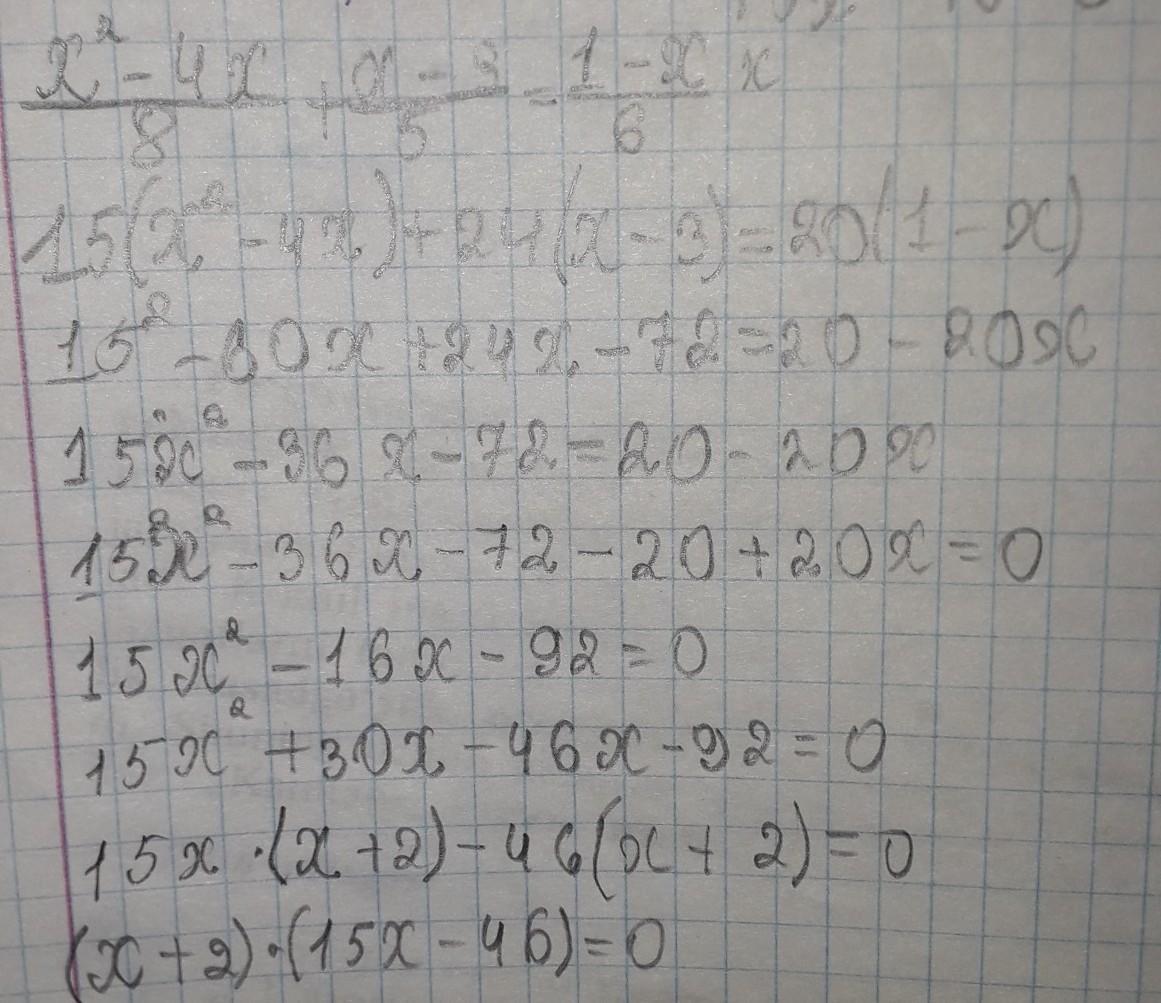 x² - 4x / 8 + x - 3 / 5 = 1 - x / 6 x
15(x² - 4x) + 24(x - 3) = 20(1 - x)
15² - 60x + 24x - 72 = 20 - 20x
15x² - 36x - 72 = 20 - 20x
15x² - 36x - 72 - 20 + 20x = 0
15x² - 16x - 92 = 0
15x² + 30x - 46x - 92 = 0
15x · (x + 2) - 46(x + 2) = 0
(x + 2) · (15x - 46) = 0